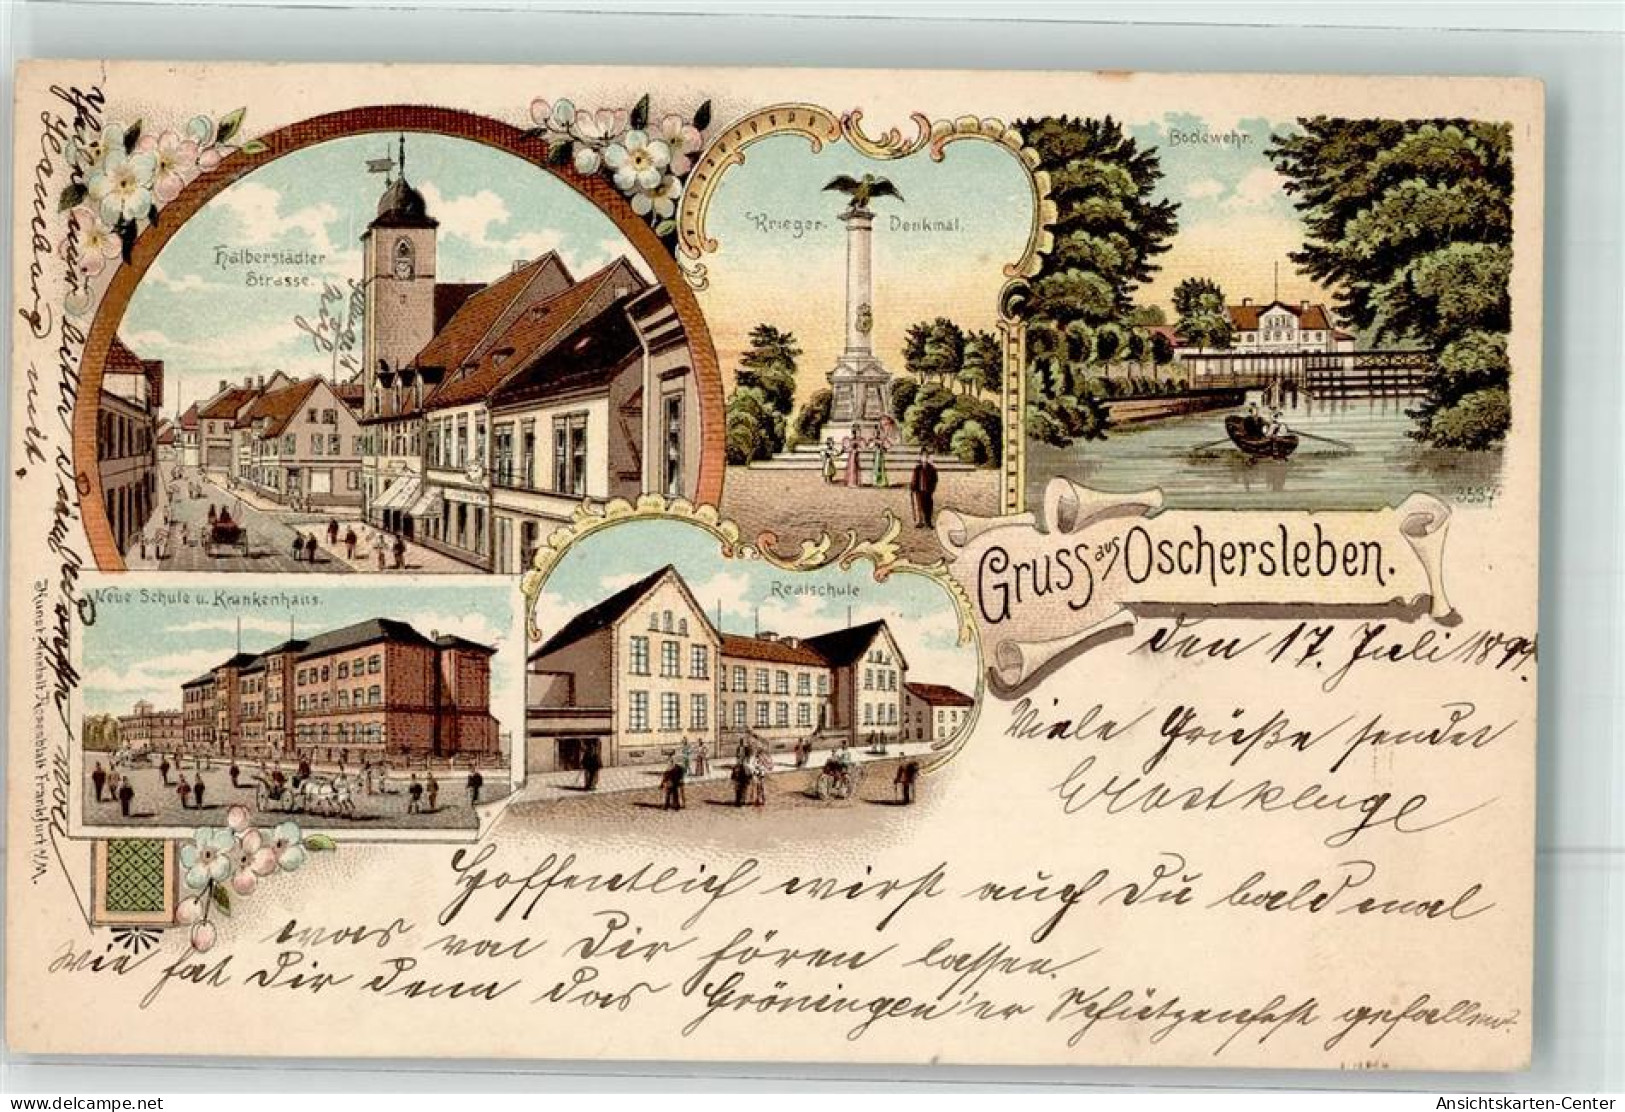 Halberstädter
Strasse.
Krieger- Denkmal.
Bodewehr.
3537
Gruss aus Oschersleben.
Neue Schule u. Krankenhaus.
Realschule
Kunst-Anstalt Rosenblatt Frankfurt a/M.
den 17. Juli 189
Viele Grüße sendet
Hoffentlich wirst auch Du bald mal
was von Dir hören lassen.
Wie hat Dir denn das Gröningen'er Schützenfest gefallen?
Ansichtskarten-Center
www.delcampe.net